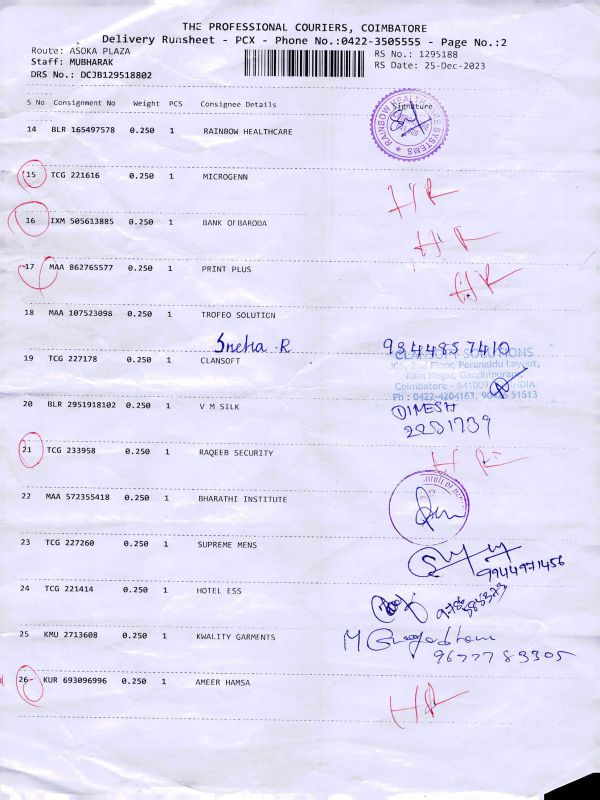 THE PROFESSIONAL COURIERS, COIMBATORE
Delivery Runsheet - PCX - Phone No.:0422-3505555 - Page No.:2
Route: ASOKA PLAZA
RS No.: 1295188
Staff: MUBHARAK
RS Date: 25-Dec-2023
DRS No.: DCJB129518802
S No Consignment No Weight PCS Consignee Details Signature
14 BLR 165497578 0.250 1 RAINBOW HEALTHCARE
RAINBOW HEALTHCARE SYSTEMS
15 TCG 221616 0.250 1 MICROGENN
HR
16 IXM 505613885 0.250 1 BANK OFBARODA
HR
17 MAA 862765577 0.250 1 PRINT PLUS
HR
18 MAA 107523098 0.250 1 TROFEO SOLUTION
Sneha .R 9344857410
19 TCG 227178 0.250 1 CLANSOFT
CLANSOFT SOLUTIONS
2nd Floor, Peranaidu Layout,
Ram Nagar, Gandhipuram,
Coimbatore - 641009 INDIA
Ph : 0422-4204163, 51513
20 BLR 2951918102 0.250 1 V M SILK
DIMESH
2231739
21 TCG 233958 0.250 1 RAQEEB SECURITY
HR
22 MAA 572355418 0.250 1 BHARATHI INSTITUTE
23 TCG 227260 0.250 1 SUPREME MENS
9944971456
24 TCG 221414 0.250 1 HOTEL ESS
25 KMU 2713608 0.250 1 KWALITY GARMENTS
9677783305
26 KUR 693096996 0.250 1 AMEER HAMSA
HR